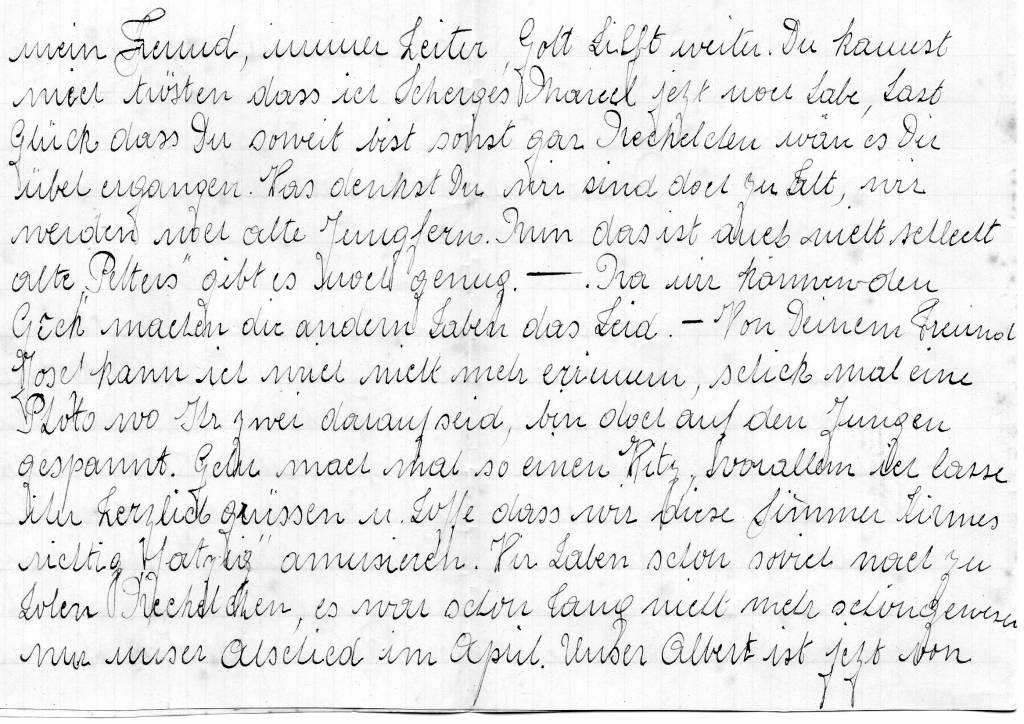 mein Freund, immer heiter, Gott hilft weiter. Du kannst
mich trösten dass ich Scherges Marcel jetzt noch habe, hast
Glück dass Du soweit bist sonst gar Rechelchen wär es Dir
übel ergangen. Was denkst Du wir sind doch zu alt, wir
werden noch alte Jungfern. Nun das ist auch nicht schlecht
alte „Pelters" gibt es noch genug. — . Na wir können den
Geck machen die andern haben das Leid. – Von Deinem Freund
Josef kann ich mich nicht mehr erinnern, schick mal eine
Photo wo Ihr zwei darauf seid, bin doch auf den Jungen
gespannt. Geh mach mal so einen Witz, vorallem ich lasse
ihn herzlich grüssen u. hoffe dass wir diese Simmer Kirmes
richtig „ " amusieren. Wir haben schon soviel nach zu
holen Rechelchen, es war schon lang nicht mehr schön gewesen
nur unser Abschied im April. Unser Albert ist jetzt von